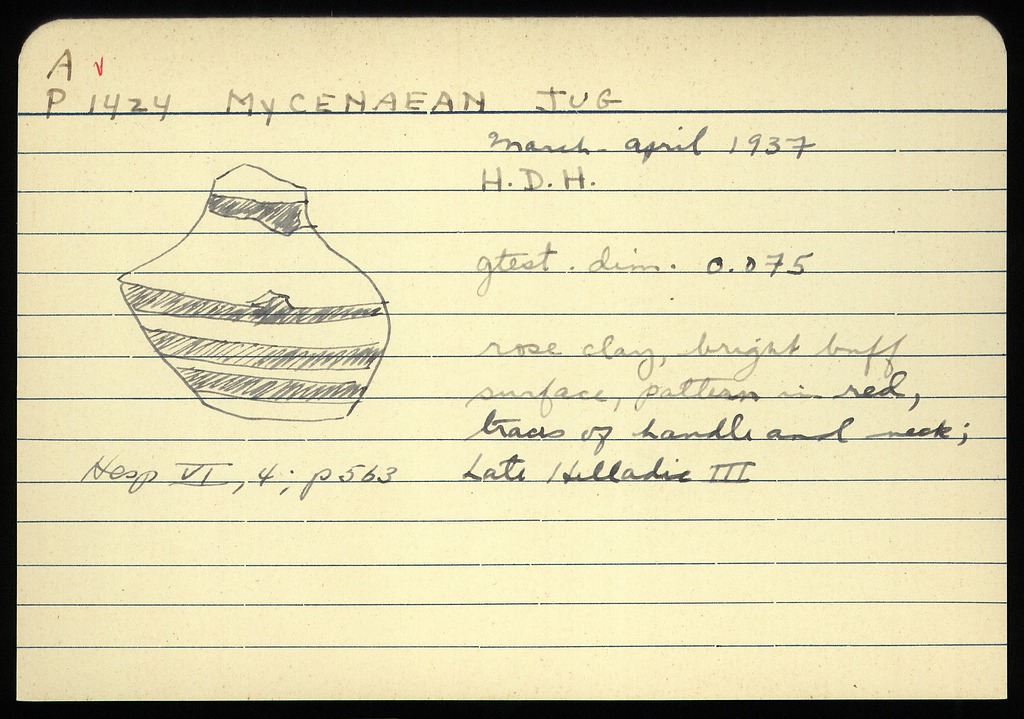 A v
P 1424 MyCENAEAN JUG
March - april 1937
H.D.H.
gtest. dim. 0.075
rose clay, bright buff
surface, pattern in red,
traces of handle and neck;
Hesp VI, 4; p 563
Late Helladic III